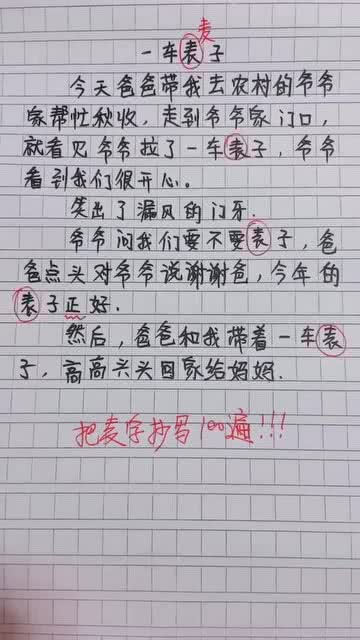 麦
一车表子
今天爸爸带我去农村的爷爷
家帮忙秋收，走到爷爷家门口，
就看见爷爷拉了一车表子，爷爷
看到我们很开心。
笑出了漏风的门牙．
爷爷问我们要不要表子，爸
爸点头对爷爷说谢谢爸，今年的
表子正好．
然后，爸爸和我带着一车表
子，高高兴兴回家给妈妈．
把麦字抄写100遍!!!